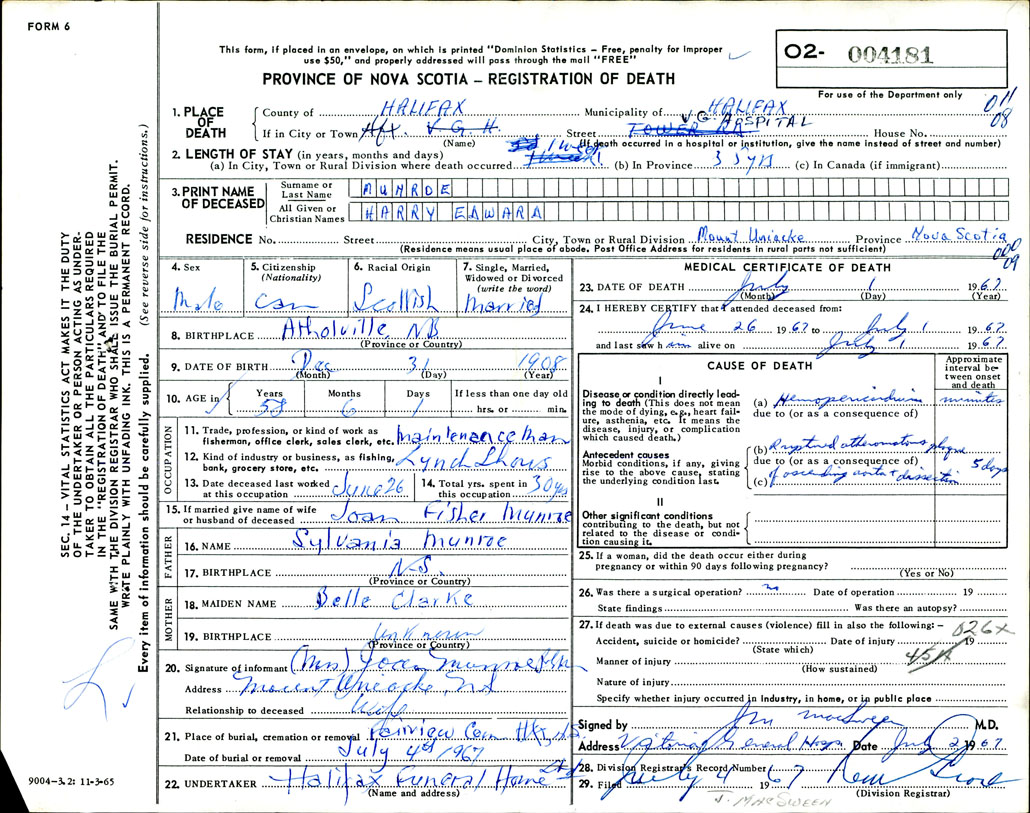 FORM 6
This form, if placed in an envelope, on which is printed "Dominion Statistics – Free, penalty for improper
use $50," and properly addressed will pass through the mail "FREE"
PROVINCE OF NOVA SCOTIA – REGISTRATION OF DEATH
O2- 004181
For use of the Department only
011
08
1. PLACE OF DEATH
County of HALIFAX Municipality of HALIFAX
V.G. HOSPITAL
If in City or Town Hfx. V.G.H. Street TOWER RD House No.
(Name) (If death occurred in a hospital or institution, give the name instead of street and number)
2. LENGTH OF STAY (in years, months and days)
(a) In City, Town or Rural Division where death occurred 1 week (b) In Province 35 yrs (c) In Canada (if immigrant)
3. PRINT NAME OF DECEASED
Surname or Last Name MUNROE
All Given or Christian Names HARRY EDWARD
RESIDENCE No. Street City, Town or Rural Division Mount Uniacke Province Nova Scotia
(Residence means usual place of abode. Post Office Address for residents in rural parts not sufficient)
000
09
4. Sex Male
5. Citizenship (Nationality) Can
6. Racial Origin Scottish
7. Single, Married, Widowed or Divorced (write the word) Married
8. BIRTHPLACE Atholville, NB
(Province or Country)
9. DATE OF BIRTH Dec 31 1908
(Month) (Day) (Year)
10. AGE in Years 58 Months 6 Days 1 If less than one day old hrs. or min.
OCCUPATION
11. Trade, profession, or kind of work as fisherman, office clerk, sales clerk, etc. maintenance man
12. Kind of industry or business, as fishing, bank, grocery store, etc. Lynch Shows
13. Date deceased last worked at this occupation June 26
14. Total yrs. spent in this occupation 30 yrs
15. If married give name of wife or husband of deceased Joan Fisher Munroe
FATHER
16. NAME Sylvania Munroe
17. BIRTHPLACE N.S.
(Province or Country)
MOTHER
18. MAIDEN NAME Belle Clarke
19. BIRTHPLACE Unknown
(Province or Country)
20. Signature of informant (Mrs) Joan Munroe
Address Mount Uniacke, NS
Relationship to deceased Wife
21. Place of burial, cremation or removal Fairview Cem Hfx, N.S.
Date of burial or removal July 4th 1967
22. UNDERTAKER Halifax Funeral Home Ltd
(Name and address)
MEDICAL CERTIFICATE OF DEATH
23. DATE OF DEATH July 1 1967
(Month) (Day) (Year)
24. I HEREBY CERTIFY that I attended deceased from:
June 26 1967 to July 1 1967
and last saw him alive on July 1 1967
CAUSE OF DEATH
Approximate interval between onset and death
I
Disease or condition directly leading to death (This does not mean the mode of dying, e.g., heart failure, asthenia, etc. It means the disease, injury, or complication which caused death.)
(a) Hemopericardium minutes
due to (or as a consequence of)
Antecedent causes
Morbid conditions, if any, giving rise to the above cause, stating the underlying condition last.
(b) Ruptured atheromatous plaque
due to (or as a consequence of)
(c) of ascending aorta & dissection 5 days
II
Other significant conditions
contributing to the death, but not related to the disease or condition causing it.
25. If a woman, did the death occur either during
pregnancy or within 90 days following pregnancy?
(Yes or No)
26. Was there a surgical operation? no Date of operation 19
State findings Was there an autopsy?
27. If death was due to external causes (violence) fill in also the following: –
Accident, suicide or homicide? Date of injury 19
(State which)
026x
Manner of injury
(How sustained)
451x
Nature of injury
Specify whether injury occurred in industry, in home, or in public place
Signed by J M MacSween M.D.
Address Victoria General Hosp. Date July 2 1967
28. Division Registrar's Record Number
29. Filed July 4 1967
(Division Registrar)
J. MACSWEEN
SEC. 14 – VITAL STATISTICS ACT MAKES IT THE DUTY
OF THE UNDERTAKER OR PERSON ACTING AS UNDER-
TAKER TO OBTAIN ALL THE PARTICULARS REQUIRED
IN THE "REGISTRATION OF DEATH" AND TO FILE THE
SAME WITH THE DIVISION REGISTRAR WHO SHALL ISSUE THE BURIAL PERMIT.
WRITE PLAINLY WITH UNFADING INK. THIS IS A PERMANENT RECORD.
Every item of information should be carefully supplied. (See reverse side for instructions.)
9004-3.2: 11-3-65